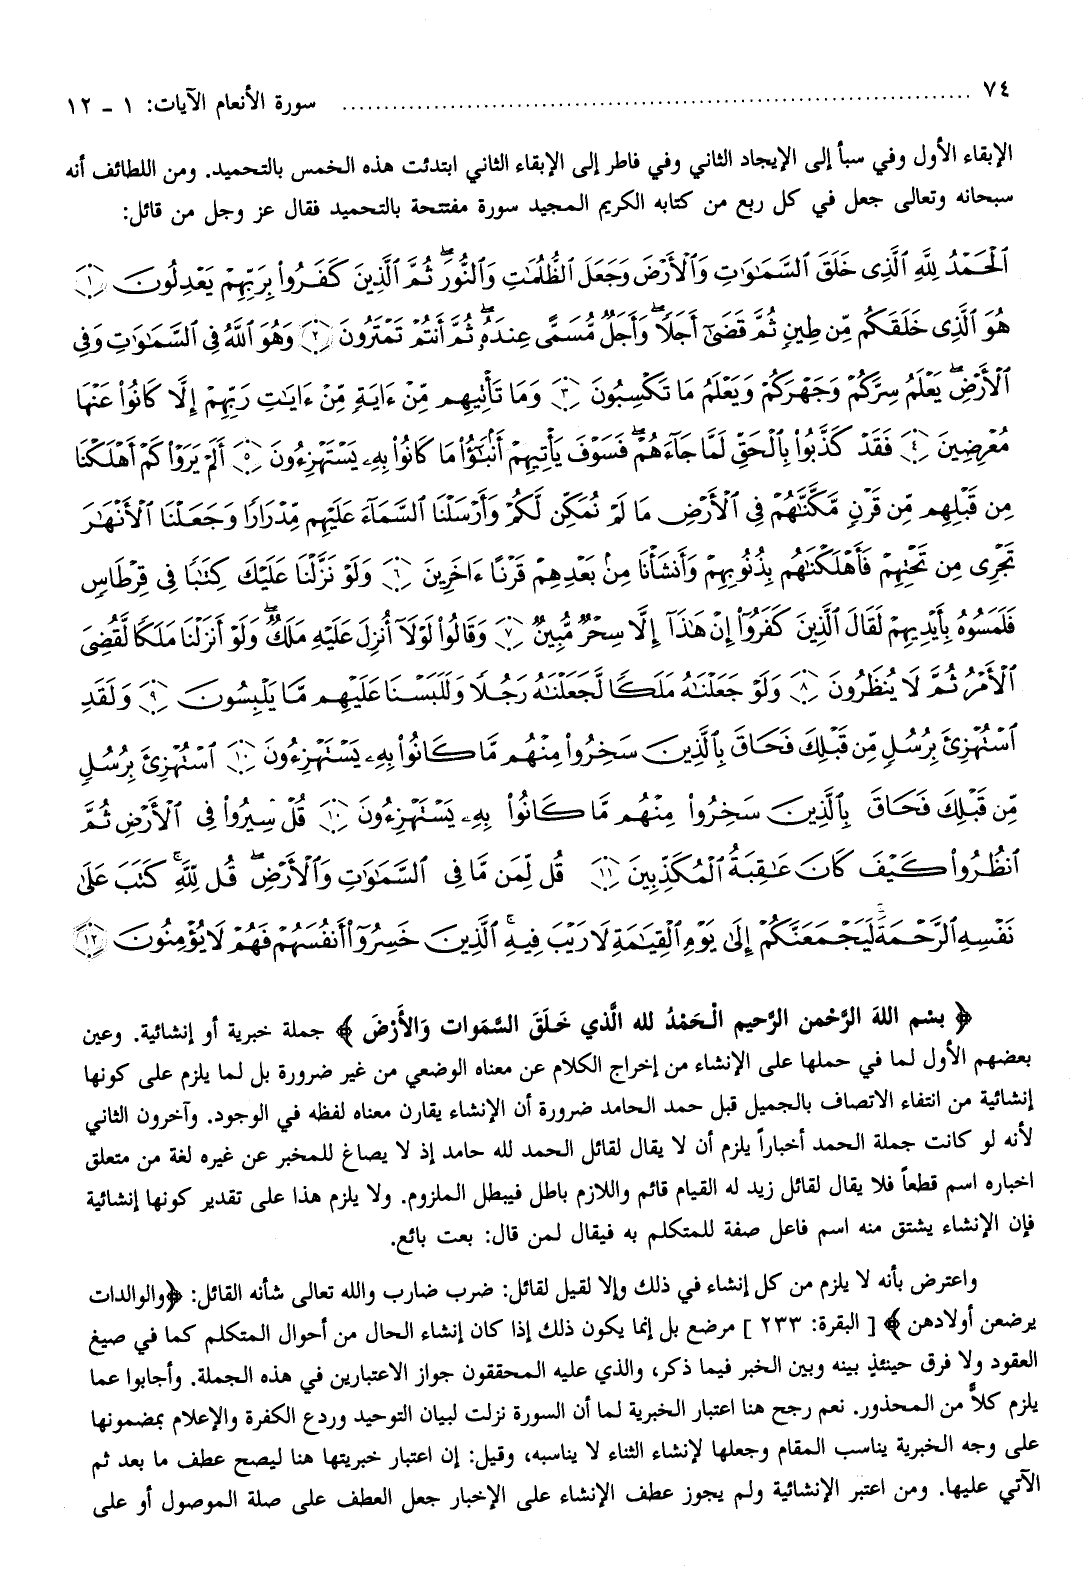 ٧٤ ........................ سورة الأنعام الآيات: ١ ـ ١٢
الإبقاء الأول وفي سبأ إلى الإيجاد الثاني وفي فاطر إلى الإبقاء الثاني ابتدئت هذه الخمس بالتحميد. ومن اللطائف أنه
سبحانه وتعالى جعل في كل ربع من كتابه الكريم المجيد سورة مفتتحة بالتحميد فقال عز وجل من قائل:
ٱلْحَمْدُ لِلَّهِ ٱلَّذِى خَلَقَ ٱلسَّمَٰوَٰتِ وَٱلْأَرْضَ وَجَعَلَ ٱلظُّلُمَٰتِ وَٱلنُّورَۖ ثُمَّ ٱلَّذِينَ كَفَرُوا۟ بِرَبِّهِمْ يَعْدِلُونَ ﴿١﴾
هُوَ ٱلَّذِى خَلَقَكُم مِّن طِينٍ ثُمَّ قَضَىٰٓ أَجَلًاۖ وَأَجَلٌ مُّسَمًّى عِندَهُۥۖ ثُمَّ أَنتُمْ تَمْتَرُونَ ﴿٢﴾ وَهُوَ ٱللَّهُ فِى ٱلسَّمَٰوَٰتِ وَفِى
ٱلْأَرْضِۖ يَعْلَمُ سِرَّكُمْ وَجَهْرَكُمْ وَيَعْلَمُ مَا تَكْسِبُونَ ﴿٣﴾ وَمَا تَأْتِيهِم مِّنْ ءَايَةٍ مِّنْ ءَايَٰتِ رَبِّهِمْ إِلَّا كَانُوا۟ عَنْهَا
مُعْرِضِينَ ﴿٤﴾ فَقَدْ كَذَّبُوا۟ بِٱلْحَقِّ لَمَّا جَآءَهُمْۖ فَسَوْفَ يَأْتِيهِمْ أَنۢبَٰٓؤُا۟ مَا كَانُوا۟ بِهِۦ يَسْتَهْزِءُونَ ﴿٥﴾ أَلَمْ يَرَوْا۟ كَمْ أَهْلَكْنَا
مِن قَبْلِهِم مِّن قَرْنٍ مَّكَّنَّٰهُمْ فِى ٱلْأَرْضِ مَا لَمْ نُمَكِّن لَّكُمْ وَأَرْسَلْنَا ٱلسَّمَآءَ عَلَيْهِم مِّدْرَارًا وَجَعَلْنَا ٱلْأَنْهَٰرَ
تَجْرِى مِن تَحْتِهِمْ فَأَهْلَكْنَٰهُم بِذُنُوبِهِمْ وَأَنشَأْنَا مِنۢ بَعْدِهِمْ قَرْنًا ءَاخَرِينَ ﴿٦﴾ وَلَوْ نَزَّلْنَا عَلَيْكَ كِتَٰبًا فِى قِرْطَاسٍ
فَلَمَسُوهُ بِأَيْدِيهِمْ لَقَالَ ٱلَّذِينَ كَفَرُوٓا۟ إِنْ هَٰذَآ إِلَّا سِحْرٌ مُّبِينٌ ﴿٧﴾ وَقَالُوا۟ لَوْلَآ أُنزِلَ عَلَيْهِ مَلَكٌۖ وَلَوْ أَنزَلْنَا مَلَكًا لَّقُضِىَ
ٱلْأَمْرُ ثُمَّ لَا يُنظَرُونَ ﴿٨﴾ وَلَوْ جَعَلْنَٰهُ مَلَكًا لَّجَعَلْنَٰهُ رَجُلًا وَلَلَبَسْنَا عَلَيْهِم مَّا يَلْبِسُونَ ﴿٩﴾ وَلَقَدِ
ٱسْتُهْزِئَ بِرُسُلٍ مِّن قَبْلِكَ فَحَاقَ بِٱلَّذِينَ سَخِرُوا۟ مِنْهُم مَّا كَانُوا۟ بِهِۦ يَسْتَهْزِءُونَ ﴿١٠﴾ ٱسْتُهْزِئَ بِرُسُلٍ
مِّن قَبْلِكَ فَحَاقَ بِٱلَّذِينَ سَخِرُوا۟ مِنْهُم مَّا كَانُوا۟ بِهِۦ يَسْتَهْزِءُونَ ﴿١٠﴾ قُلْ سِيرُوا۟ فِى ٱلْأَرْضِ ثُمَّ
ٱنظُرُوا۟ كَيْفَ كَانَ عَٰقِبَةُ ٱلْمُكَذِّبِينَ ﴿١١﴾ قُل لِّمَن مَّا فِى ٱلسَّمَٰوَٰتِ وَٱلْأَرْضِۖ قُل لِّلَّهِۚ كَتَبَ عَلَىٰ
نَفْسِهِ ٱلرَّحْمَةَۚ لَيَجْمَعَنَّكُمْ إِلَىٰ يَوْمِ ٱلْقِيَٰمَةِ لَا رَيْبَ فِيهِۚ ٱلَّذِينَ خَسِرُوٓا۟ أَنفُسَهُمْ فَهُمْ لَا يُؤْمِنُونَ ﴿١٢﴾
﴿ بسْم اللهَ الرَّحْمن الرَّحيم الْحَمْدُ لله الَّذي خَلَقَ السَّمَوات وَالأَرْضَ ﴾ جملة خبرية أو إنشائية. وعين
بعضهم الأول لما في حملها على الإنشاء من إخراج الكلام عن معناه الوضعي من غير ضرورة بل لما يلزم على كونها
إنشائية من انتفاء الاتصاف بالجميل قبل حمد الحامد ضرورة أن الإنشاء يقارن معناه لفظه في الوجود. وآخرون الثاني
لأنه لو كانت جملة الحمد أخباراً يلزم أن لا يقال لقائل الحمد لله حامد إذ لا يصاغ للمخبر عن غيره لغة من متعلق
اخباره اسم قطعاً فلا يقال لقائل زيد له القيام قائم واللازم باطل فيبطل الملزوم. ولا يلزم هذا على تقدير كونها إنشائية
فإن الإنشاء يشتق منه اسم فاعل صفة للمتكلم به فيقال لمن قال: بعت بائع.
واعترض بأنه لا يلزم من كل إنشاء في ذلك وإلا لقيل لقائل: ضرب ضارب والله تعالى شأنه القائل: ﴿والوالدات
يرضعن أولادهن ﴾ [ البقرة: ٢٣٣ ] مرضع بل إنما يكون ذلك إذا كان إنشاء الحال من أحوال المتكلم كما في صيغ
العقود ولا فرق حينئذٍ بينه وبين الخبر فيما ذكر، والذي عليه المحققون جواز الاعتبارين في هذه الجملة. وأجابوا عما
يلزم كلاًّ من المحذور. نعم رجح هنا اعتبار الخبرية لما أن السورة نزلت لبيان التوحيد وردع الكفرة والإعلام بمضمونها
على وجه الخبرية يناسب المقام وجعلها لإنشاء الثناء لا يناسبه، وقيل: إن اعتبار خبريتها هنا ليصح عطف ما بعد ثم
الآتي عليها. ومن اعتبر الإنشائية ولم يجوز عطف الإنشاء على الإخبار جعل العطف على صلة الموصول أو على